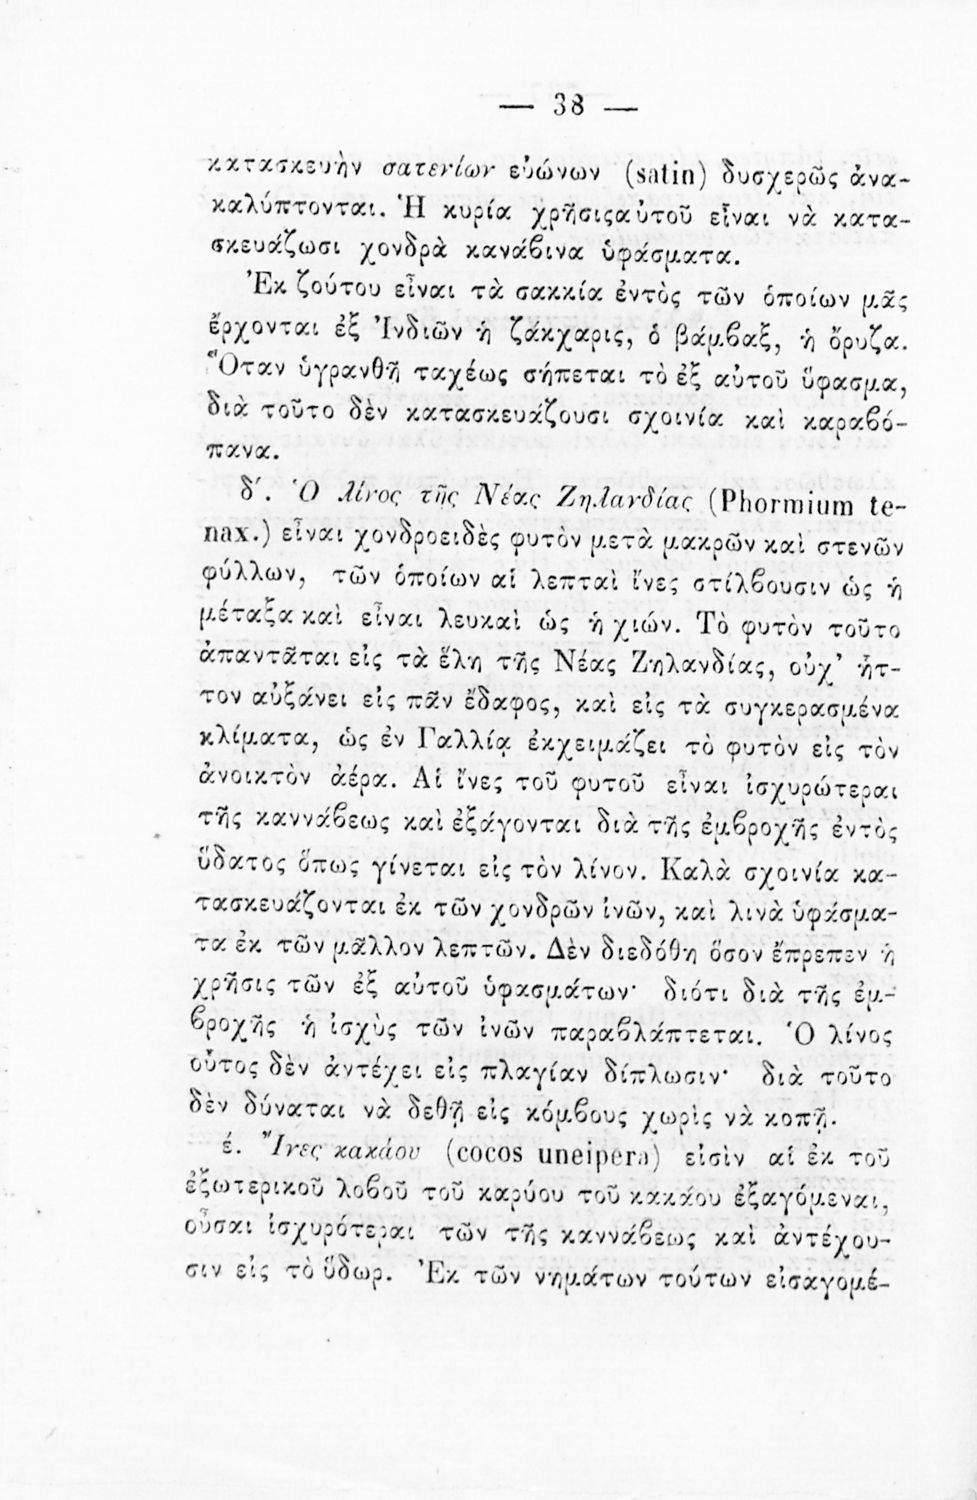 — 38 —
κατασκευὴν σατενίων εὐώνων (satin) δυσχερῶς ἀνα-
καλύπτονται. Ἡ κυρία χρῆσιςαὐτοῦ εἶναι νὰ κατα-
σκευάζωσι χονδρὰ κανάβινα ὑφάσματα.
Ἐκ ζούτου εἶναι τὰ σακκία ἐντὸς τῶν ὁποίων μᾶς
ἔρχονται ἐξ Ἰνδιῶν ἡ ζάκχαρις, ὁ βάμβαξ, ἡ ὄρυζα.
Ὅταν ὑγρανθῇ ταχέως σήπεται τὸ ἐξ αὐτοῦ ὕφασμα,
διὰ τοῦτο δὲν κατασκευάζουσι σχοινία καὶ καραβό-
πανα.
δ΄. Ὁ λίνος τῆς Νέας Ζηλανδίας (Phormium te-
nax.) εἶναι χονδροειδὲς φυτὸν μετὰ μακρῶν καὶ στενῶν
φύλλων, τῶν ὁποίων αἱ λεπταὶ ἴνες στίλβουσιν ὡς ἡ
μέταξα καὶ εἶναι λευκαὶ ὡς ἡ χιών. Τὸ φυτὸν τοῦτο
ἀπαντᾶται εἰς τὰ ἕλη τῆς Νέας Ζηλανδίας, οὐχ’ ἧτ-
τον αὐξάνει εἰς πᾶν ἔδαφος, καὶ εἰς τὰ συγκερασμένα
κλίματα, ὡς ἐν Γαλλίᾳ ἐκχειμάζει τὸ φυτὸν εἰς τὸν
ἀνοικτὸν ἀέρα. Αἱ ἴνες τοῦ φυτοῦ εἶναι ἰσχυρώτεραι
τῆς καννάβεως καὶ ἐξάγονται διὰ τῆς ἐμβροχῆς ἐντὸς
ὕδατος ὅπως γίνεται εἰς τὸν λίνον. Καλὰ σχοινία κα-
τασκευάζονται ἐκ τῶν χονδρῶν ἰνῶν, καὶ λινὰ ὑφάσμα-
τα ἐκ τῶν μᾶλλον λεπτῶν. Δὲν διεδόθη ὅσον ἔπρεπεν ἡ
χρῆσις τῶν ἐξ αὐτοῦ ὑφασμάτων· διότι διὰ τῆς ἐμ-
βροχῆς ἡ ἰσχὺς τῶν ἰνῶν παραβλάπτεται. Ὁ λίνος
οὗτος δὲν ἀντέχει εἰς πλαγίαν δίπλωσιν· διὰ τοῦτο
δὲν δύναται νὰ δεθῇ εἰς κόμβους χωρὶς νὰ κοπῇ.
έ. Ἴνες κακάου (cocos uneipera) εἰσὶν αἱ ἐκ τοῦ
ἐξωτερικοῦ λοβοῦ τοῦ καρύου τοῦ κακάου ἐξαγόμεναι,
οὖσαι ἰσχυρότεραι τῶν τῆς καννάβεως καὶ ἀντέχου-
σιν εἰς τὸ ὕδωρ. Ἐκ τῶν νημάτων τούτων εἰσαγομέ-